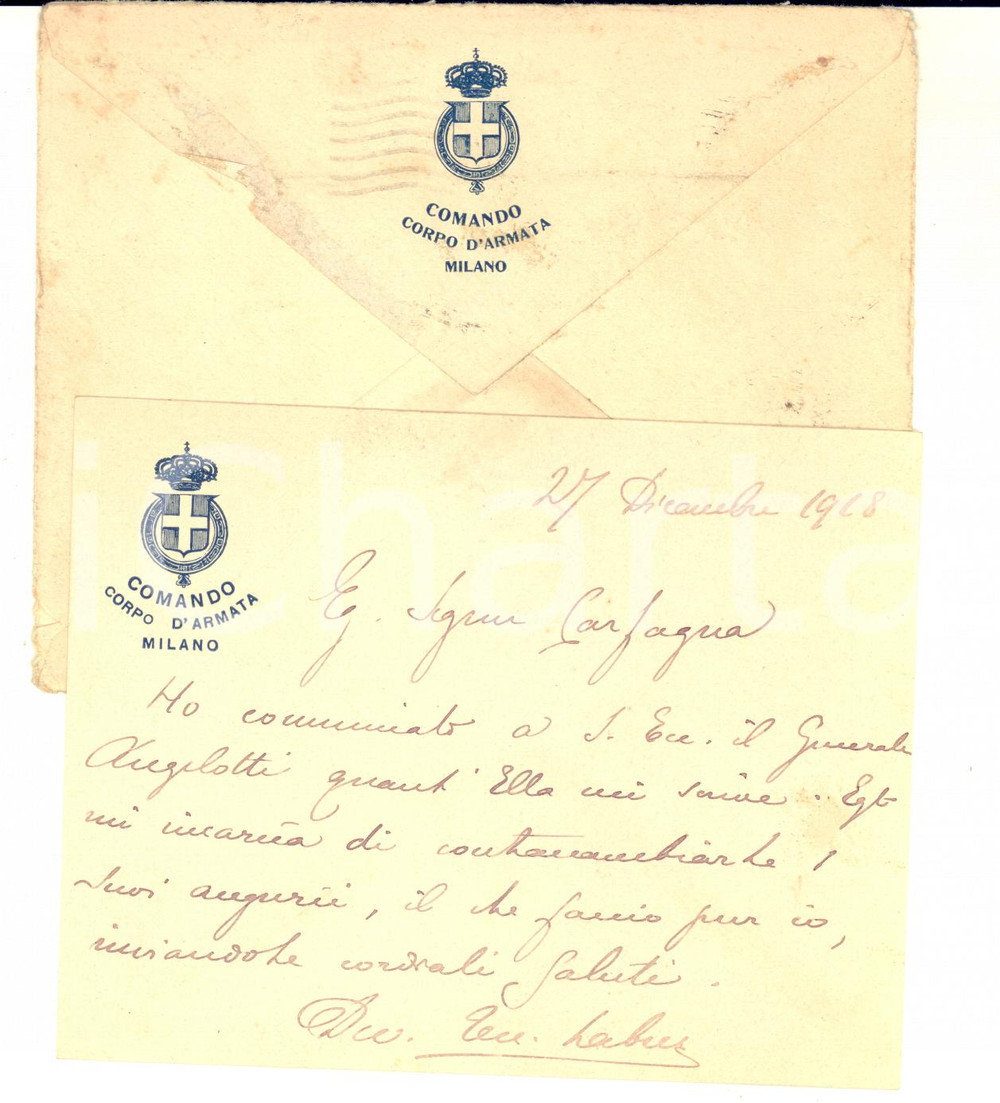 COMANDO
CORPO D'ARMATA
MILANO
COMANDO
CORPO D'ARMATA
MILANO
27 Dicembre 1918
Eg. Signor Carfagna
Ho comunicato a S. Ecc. il Generale
Angelotti quant' Ella mi scrive. Egli
mi incarica di contraccambiarle i
Suoi augurii, il che faccio pur io,
inviandole cordiali saluti.
Dev.